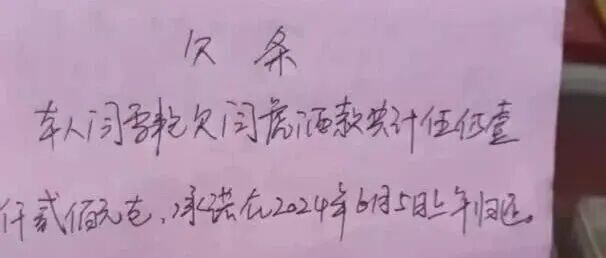 欠条
本人闫雪欠闫虎酒款共计伍壹
仟贰佰元,承诺在2024年6月5日上午归还。